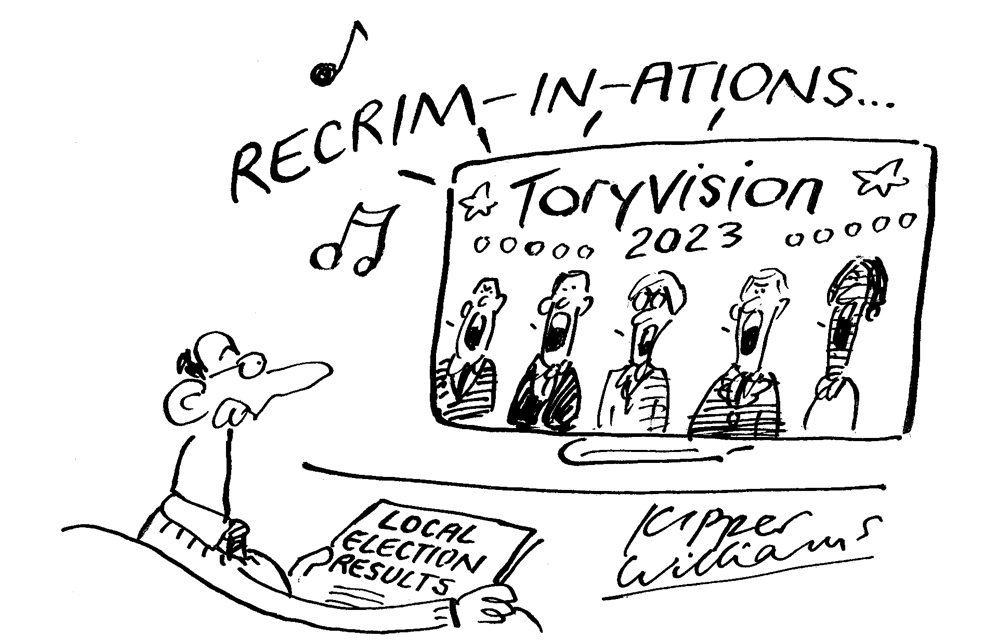 RECRIM-IN-ATIONS...
ToryVision
2023
LOCAL
ELECTION
RESULTS
Kipper
Williams